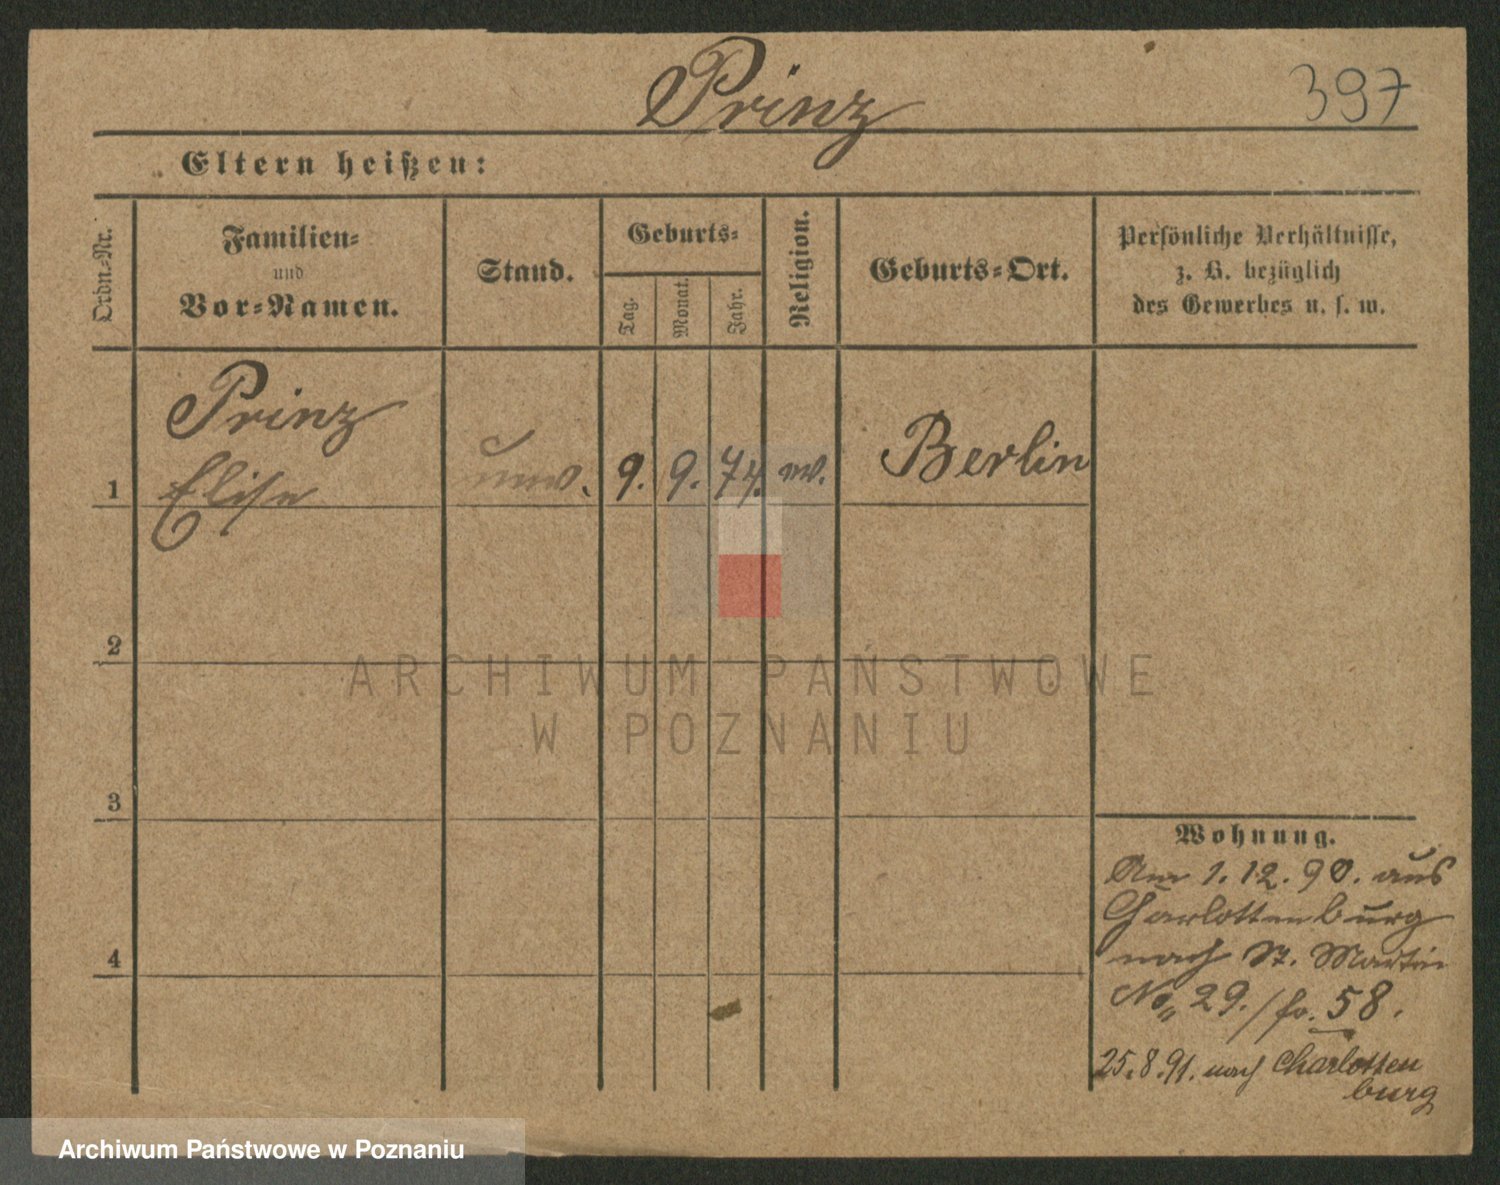 Prinz
397
Eltern heißen:
Ordn.=Nr.
Familien=
und
Vor=Namen.
Stand.
Geburts=
Tag.
Monat.
Jahr.
Religion.
Geburts=Ort.
Persönliche Verhältnisse,
z. B. bezüglich
des Gewerbes u. s. w.
Prinz
1 Elise unv. 9. 9. 74. Berlin
2
3
4
ARCHIWUM PAŃSTWOWE
W POZNANIU
Wohnung.
Am 1.12.90. aus
Charlottenburg
nach St. Martin
No 29./fr. 58.
25.8.91. nach Charlotten
burg
Archiwum Państwowe w Poznaniu